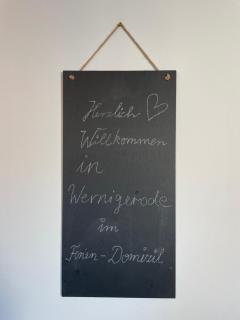 Herzlich
Willkommen
in
Wernigerode
im
Ferien-Domizil